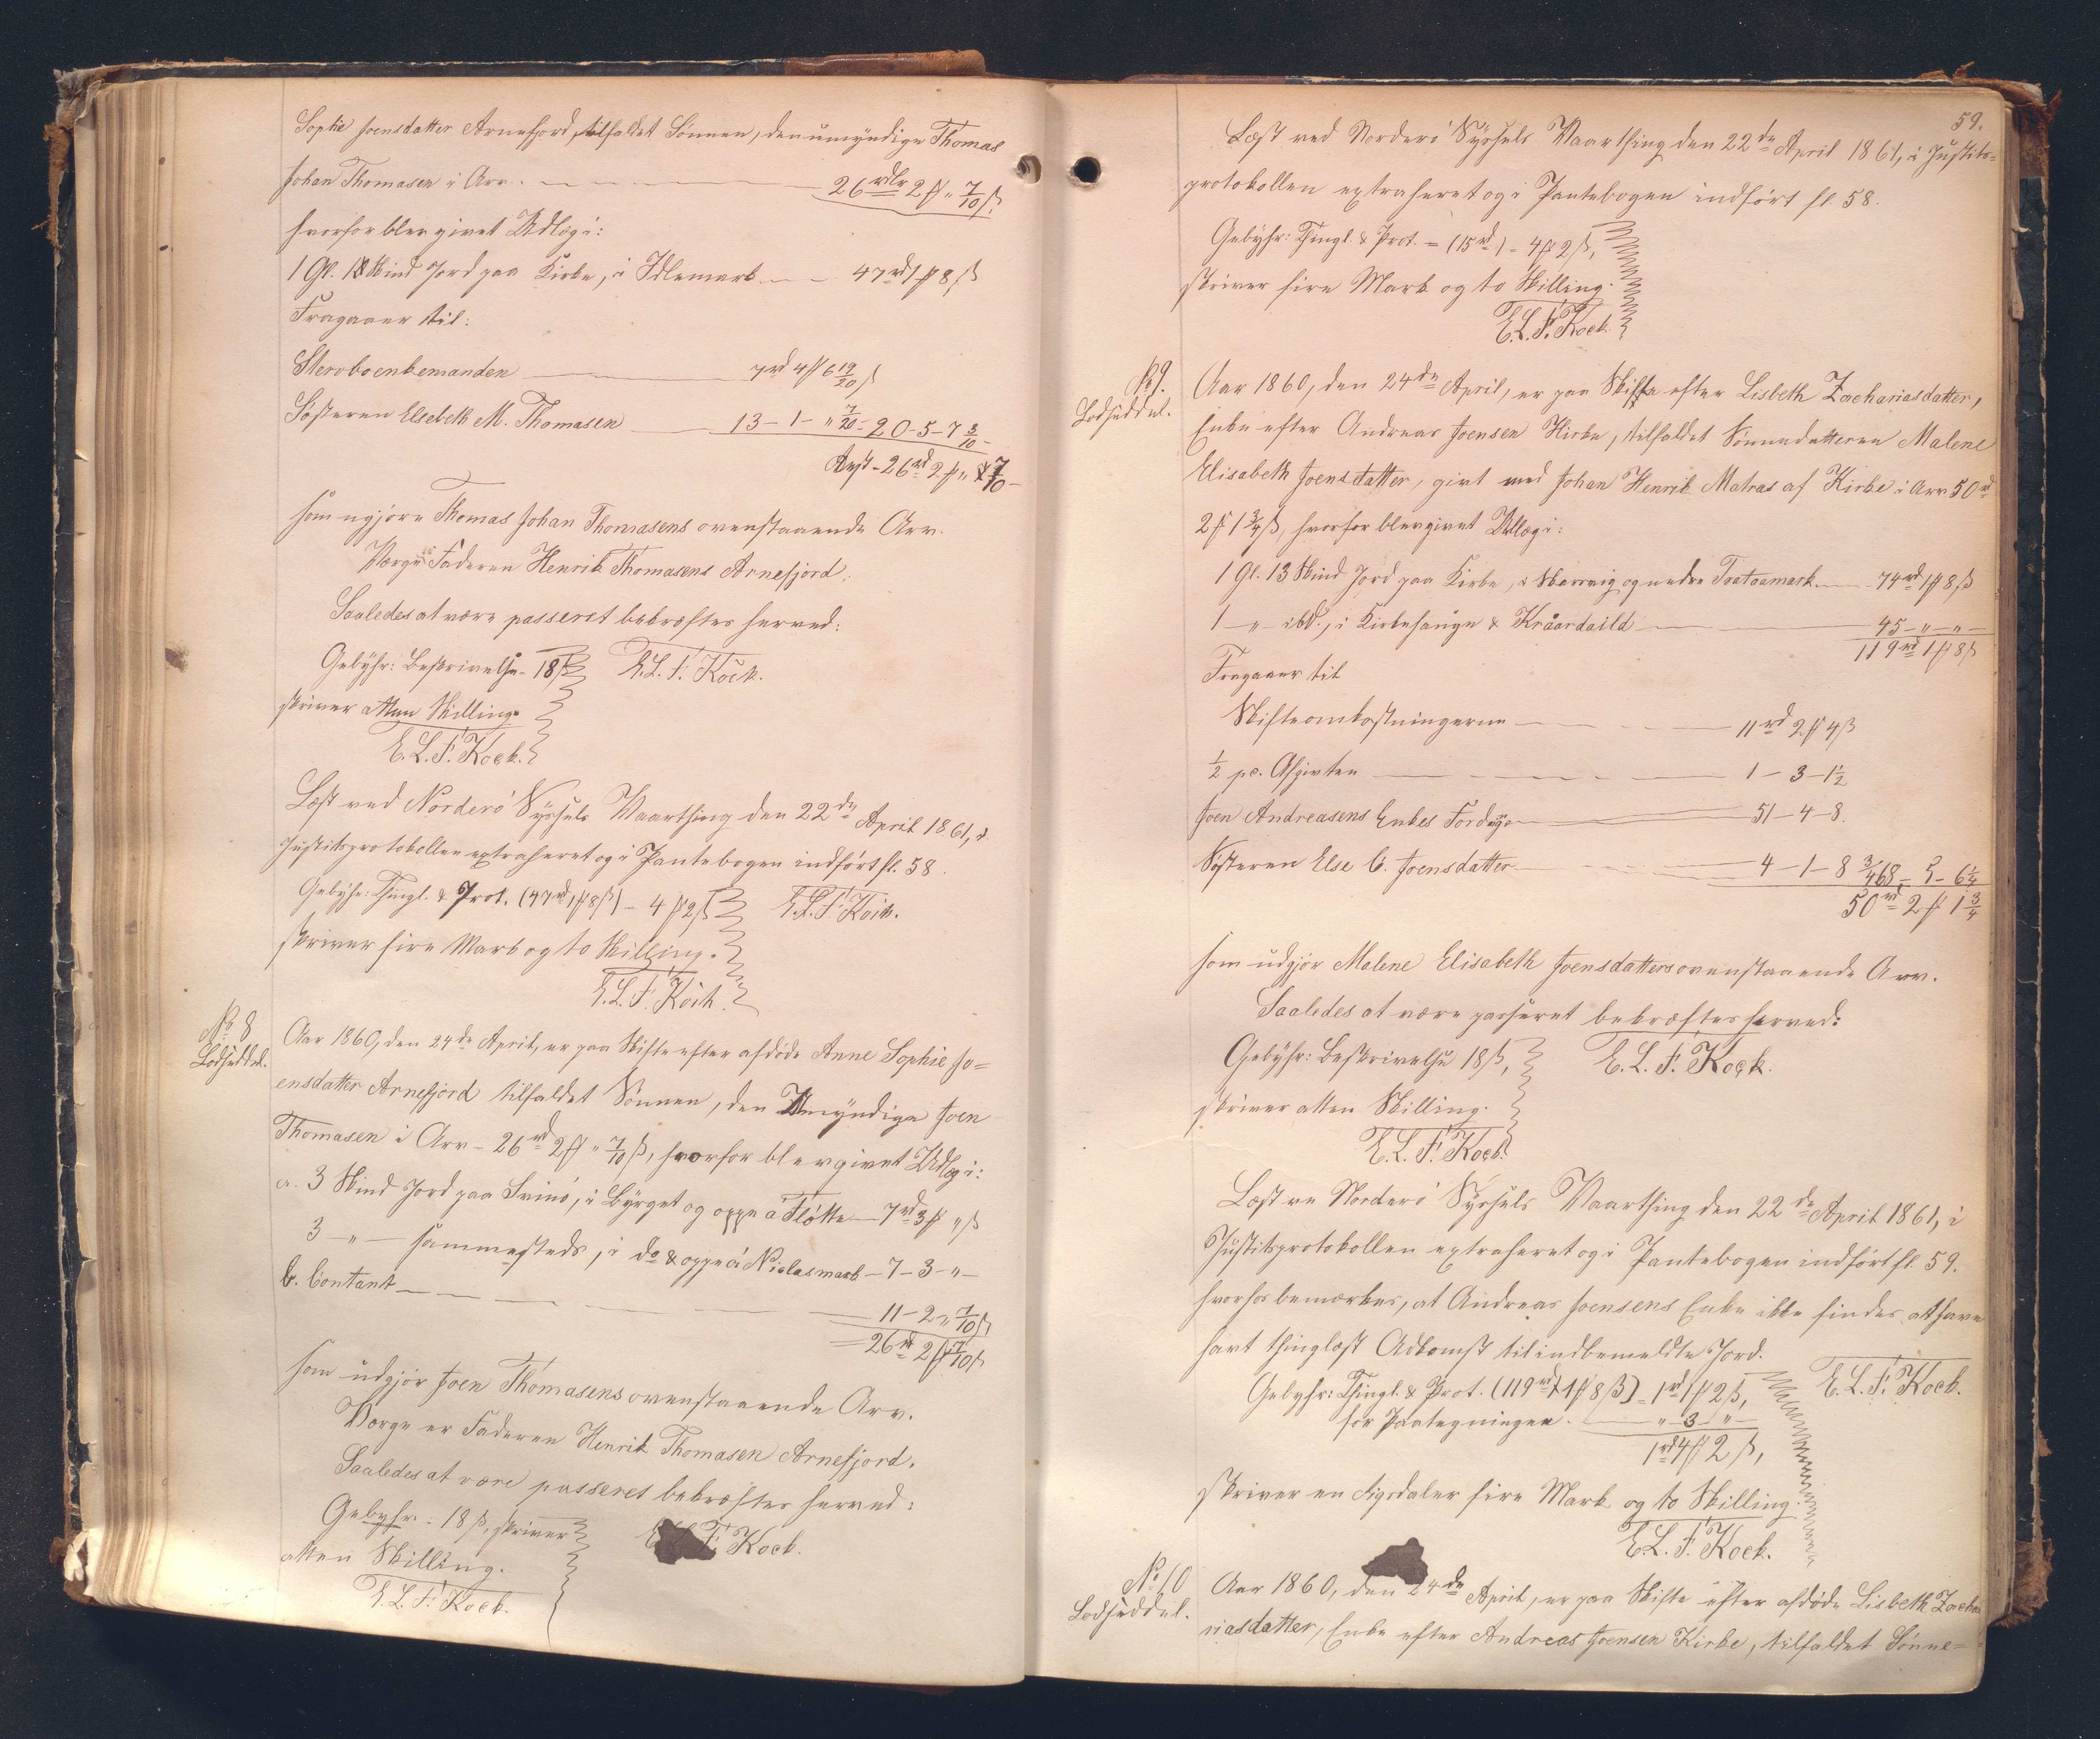 Sophie Joensdatter Arnefjord, tilfaldet Sønnen, den umyndige Thomas
Johan Thomasen i Arv. 26 rdlr 2 ₰ " 7/10 ß.
hvorfor blev givet Udlæg i:
1 Gl. 1 Skind Jord paa Kirke, i Idlemark 47 rd 1 ₰ 8 ß
Fragaaer til:
Stervboenkemanden 7 rd 4 ₰ 6 19/20 ß
Søsteren Elsebeth M. Thomasen 13 - 1 - " 7/20 - 20 - 5 - 7 3/10 -
Rest - 26 rd 2 ₰ " 7/10 -
som ugjøre Thomas Johan Thomasens ovenstaaende Arv.
Værge er Faderen Henrik Thomasens Arnefjord.
Saaledes at være passeret bekræftes herved:
Gebyhr: Beskrivelse - 18 ß E. L. F. Kock.
skriver atten Skilling.
E. L. F. Kock.
Læst ved Norderø Syssels Vaarthing den 22de April 1861, i
Justitsprotokollen extraheret og i Pantebogen indført fl. 58.
Gebyhr: Thingl. & Prot. (47 rd 1 ₰ 8 ß) - 4 ₰ 2 ß E. L. F. Kock.
skriver fire Mark og to Skilling.
E. L. F. Kock.
No 8
Lodseddel.
Aar 1860, den 24de April, er paa Skifte efter afdøde Anne Sophie Jo=
ensdatter Arnefjord tilfaldet Sønnen, den Umyndige Joen
Thomasen i Arv - 26 rd 2 ₰ " 7/10 ß, hvorfor blev givet Udlæg i:
a. 3 Skind Jord paa Svinø, i Byrget og oppe á Fløtte - 7 rd 3 ₰ " ß
3 - " - sammesteds, i do & oppe á Niclasmark - 7 - 3 - " -
b. Contant 11 - 2 " 7/10 ß
26 rd 2 ₰ 7/10 ß
som udgjør Joen Thomasens ovenstaaende Arv.
Værge er Faderen Henrik Thomasen Arnefjord.
Saaledes at være passeret bekræftes herved:
Gebyhr. - 18 ß, skriver E. L. F. Kock.
atten Skilling.
E. L. F. Kock.
59.
Læst ved Norderø Syssels Vaarthing den 22de April 1861, i Justits=
protokollen extraheret og i Pantebogen indført fl. 58.
Gebyhr: Thingl. & Prot. = (15 rd) - 4 ₰ 2 ß,
skriver fire Mark og to Skilling.
E. L. F. Kock.
No 9.
Lodseddel.
Aar 1860, den 24de April, er paa Skifte efter Lisbeth Zachariasdatter,
Enke efter Andreas Joensen Kirke, tilfaldet Sønnedatteren Malene
Elisabeth Joensdatter, givt med Johan Henrik Matras af Kirke i Arv 50 rd
2 ₰ 1 3/4 ß, hvorfor blev givet Udlæg i:
1 Gl. 13 Skind Jord paa Kirke, i Skarvvig og nedre Traitaamark 74 rd 1 ₰ 8 ß
1 - " - ibd., i Kirkehauge & Kråardaild 45 - " - " -
119 rd 1 ₰ 8 ß
Fragaaer til
Skifteomkostningerne 11 rd 2 ₰ 4 ß
1/2 pc. Afgivten 1 - 3 - 1 1/2
Joen Andreasens Enkes Fordring 51 - 4 - 8.
Søsteren Else C. Joensdatter 4 - 1 - 8 3/4 68 - 5 - 6 1/4
50 rd 2 ₰ 1 3/4
som udgjør Malene Elisabeth Joensdatters ovenstaaende Arv.
Saaledes at være passeret bekræftes herved:
Gebyhr: Beskrivelse 18 ß, E. L. F. Kock.
skriver atten Skilling.
E. L. F. Kock.
Læst ve Norderø Syssels Vaarthing den 22de April 1861, i
Justitsprotokollen extraheret og i Pantebogen indført fl. 59.
hvorhos bemærkes, at Andreas Joensens Enke ikke findes at have
havt thinglæst Adkomst til indbemeldte Jord.
Gebyhr: Thingl. & Prot. (119 rd 1 ₰ 8 ß) - 1 rd 1 ₰ 2 ß, E. L. F. Kock.
for Paategningen " - 3 - " -
1 rd 4 ₰ 2 ß,
skriver en Rigsdaler fire Mark og to Skilling.
E. L. F. Kock.
No 10
Lodseddel.
Aar 1860, den 24de April, er paa Skifte efter afdøde Lisbeth Zacha
riasdatter, Enke efter Andreas Joensen Kirke, tilfaldet Sønne=